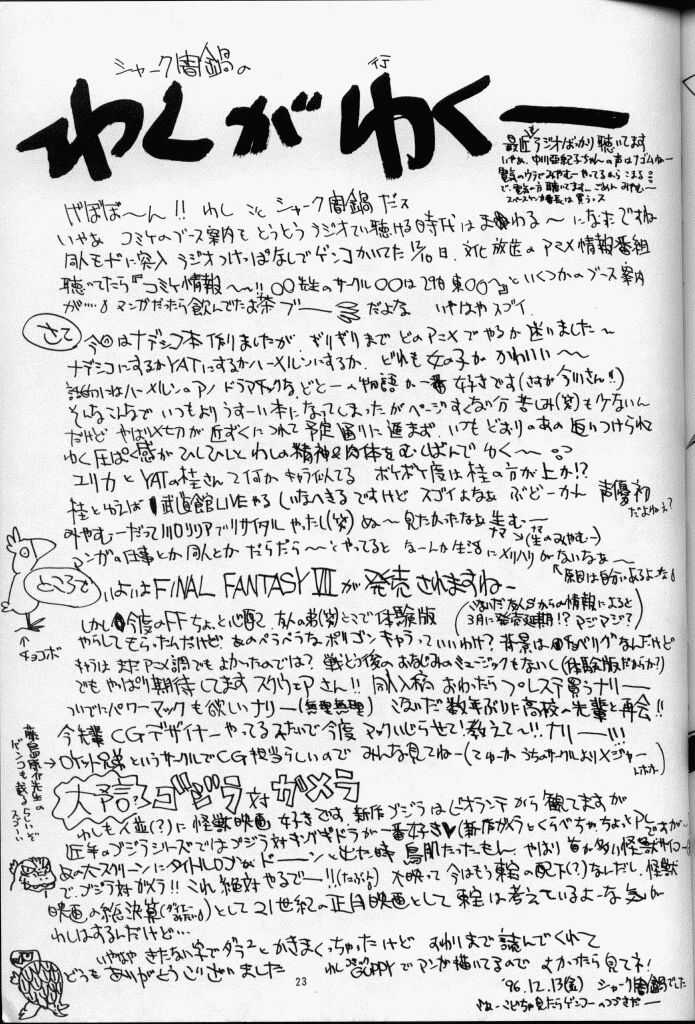 シャーク闇鍋の
行
わくがゆくー
最近ラジオばっかり聴いてます
いやぁ、中川亜紀子ちゃんの声は
電気のウラでみやむーやってるから こまる
で、電気の方聴いてます、ごめん みやむー
は買うっス
げぼぼ〜ん!! わし こと シャーク闇鍋だス
いやぁ コミケのブース案内も とうとう ラジオでい聴ける時代 は まわる〜 になったですね
同人モードに突入 ラジオつけっぱなしで ゲンコ かいてた 12/10日、文化放送の アニメ情報番組
聴いてたら『コミケ情報〜!! ○○先生のサークル○○は29日 東○○へ』といくつかのブース案内
が…。マンガだったら飲んでたお茶 ブー だよな いやはや スゴイ
さて
今回はナデシコ本作りましたが、ギリギリまで どのアニメでやるか 迷いました〜
ナデシコにするかYATにするかハーメルンにするか、どれも女の子がかわいい〜
話的にはハーメルンのアノ ドラマチックな どとーの物語が一番好きです(さすが今川さん!!)
そんなこんなで いつもより うすーい本になってしまったが ページすくない分 苦しみ(笑)も少ないん
だけど やはり〆切が近ずくにつれて予定通りに進まず、いつも どおりの あの 追いつけられ
ゆく圧ぱく感がひしひしと わしの精神&肉体を むしばんで ゆく〜
ユリカと YATの桂さんて何か キャラ似てる ボケボケ度は桂の方が上か!?
桂といえば 武道館LIVEやる しいなへきる ですけど スゴイよなぁ ぶどーかん 声優初
だよねぇ?
みやむーだって川口リリアでリサイタルやったし(笑) ぬ〜 見たかったなぁ 生むー
ナマ
(生のみやむー)
マンガの仕事とか同人とか だらだら〜とやってると なーんか生活にメリハリがないなぁ〜
↑原因は自分にあるよーな
ところで
いよいよ FINAL FANTASY VII が発売されますねー
しかし 今度のFFちょっと心配 友人の弟(笑)とこで体験版
(つい最近友人Sからの情報によると
3月に発売延期!? マジ?マジ?)
↑
チョコボ
やらしてもらったんだけど、あのペラペラなポリゴンキャラっていいわけ? 背景は なんだけど
キャラは まだアニメ調でもよかったのでは? 戦とう後のおなじみのミュージックもないし(体験版だからか?)
でもやっぱり期待してます スクウェアさん!! 同人入稿 おわったら プレステ買うナリー
ついでにパワーマックも欲しいナリー(無理無理) 数年ぶりに高校の先輩と再会!!
今先輩 CGデザイナー やってるみたいで今度 マックいじらせて!教えて〜!!ナリー!!!
藤島康介先生の
ゲンコも載るらしいぞ
スゴーい
→ロケット兄弟というサークルでCG担当らしいので みんな見てねー(てゆーか うちのサークルよりメジャー
大予言 ゴジラ対ガメラ
わしも人並(?)に 怪獣映画 好きです 新作ゴジラはビオランテから観てますが
近年のゴジラシリーズではゴジラ対キングギドラが一番好き♥(新作ガメラとくらべちゃちょっとアレですが〜)
あの大スクリーンにタイトルロゴがドーーンと出た時 鳥肌たったもん、やはり 首が多い怪獣サイコー
で、ゴジラ対ガメラ!! これ絶対やるでー!!(たぶん) 大映って 今はもう東宝の配下(?)なんだし、怪獣
映画の総決算 として 21世紀の正月映画として 東宝は考えているよーな 気が
わしはするんだけど…
いやいや きたない字で ダラ2 と かきまくっちゃったけど すわりまで 読んでくれて
どうも ありがとうございました わし GUPPYでマンガ描いてるので よかったら見てネ!
'96.12.13(金) シャーク闇鍋でした
23